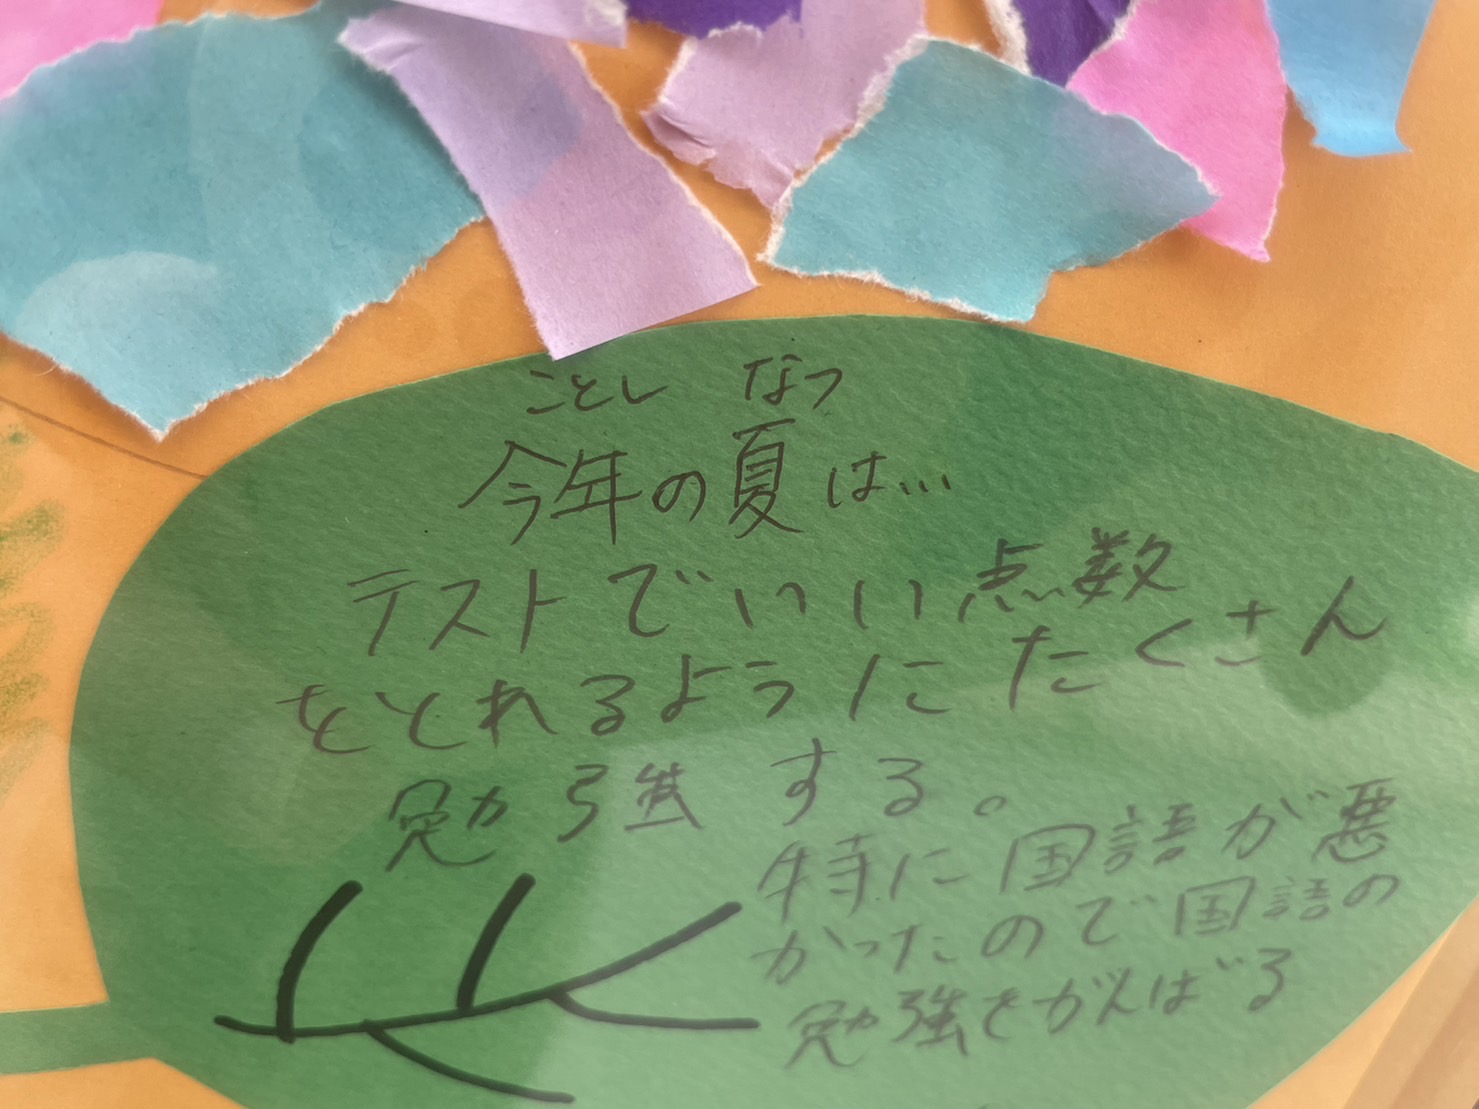 ことし なつ
今年の夏は…
テストでいい点数
をとれるようにたくさん
勉強する。
特に国語が悪
かったので国語の
勉強をがんばる